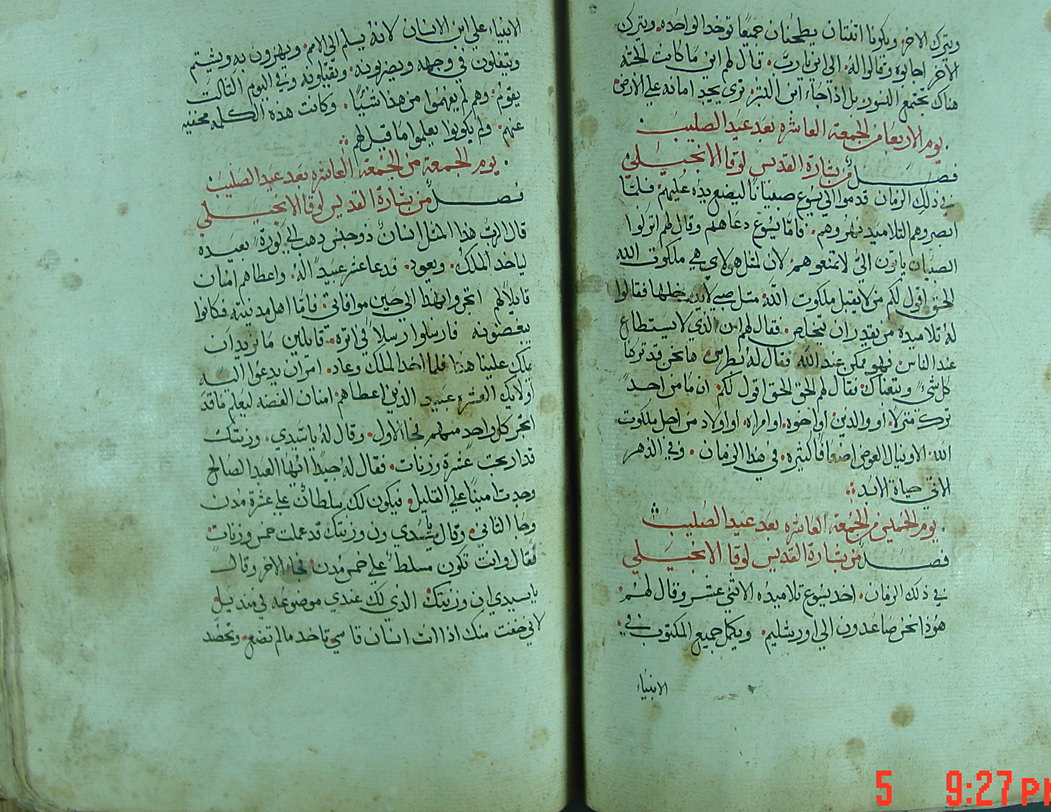 ويترك الاخر ويكونا اثنتان يطحنان جميعًا توخد الواحده. ويترك
الاخر اجابوا وقالوا له. الي اين يا رب. قال لهم اين ما كانت الجثه
هناك تجتمع النسور بل اذا جاء ابن البشر ترى يجد امانه علي الارض
يوم الاربعا من الجمعة العاشره بعد عيد الصليب
فصل من بشارة القديس لوقا الانجيلي
في ذلك الزمان قدموا الي يسوع صبيانًا ليضع يده عليهم فلما
ابصروهم التلاميذ نهروهم. فاما يسوع دعاهم وقال لهم اتركوا
الصبيان ياتون اليّ لا تمنعوهم لان لمثل هولاي هي ملكوت الله
الحق اقول لكم من لا يقبل ملكوت الله مثل صبي لا يدخلها فقالوا
له تلاميذه من يقدر ان يخلص. فقال لهم ان الذي لا يستطاع
عند الناس فهو ممكن عند الله فقال له بطرس ها نحن قد تركنا
كل شي وتبعناك فقال لهم الحق الحق اقول لكم ان ما من احد
ترك منزلا او والدين او اخوه او امراه او اولاد من اجل ملكوت
الله الا وينال العوض اضعافا كثيره في هذا الزمان. وفي الدهر
الاتي حياة الابد
يوم الخميس من الجمعة العاشره بعد عيد الصليب
فصل من بشارة القديس لوقا الانجيلي
في ذلك الزمان اخد يسوع تلاميذه الاثني عشر وقال لهم
هوذا نحن صاعدون الي اورشليم ويكمل جميع المكتوب في
الانبياء
الانبياء علي ابن الانسان لانه يسلم الي الامم ويهزون به ويشتم
ويتفلون في وجهه ويضربونه ويقتلونه وفي اليوم الثالث
يقوم. وهم لم يفهموا من هذا شيًا. وكانت هذه الكلمه مخفيه
عنهم. ولم يكونوا يعلموا ما قيل لهم
يوم الجمعة من الجمعة العاشره بعد عيد الصليب
فصل من بشارة القديس لوقا الانجيلي
قال الرب هذا المثل انسان ذو جنس ذهب الي كورة بعيده
ياخد الملك. ويعود. فدعا عشر عبيد له. واعطاهم امنان
قايلا لهم اتجروا بهذا الي حين موافاتي. فاما اهل مدينته فكانوا
يبغضونه فارسلوا رسلا في اثره. قايلين ما نريد ان
يملك علينا هذا فلما اخد الملك وعاد. امر ان يدعوا اليه
اولايك العشره عبيد الذين اعطاهم امنان الفضه ليعلم ما قد
اتجر كل واحد منهم فجا الاول. وقال له يا سيدي. وزنتك
قد ارتجت عشرة وزنات. فقال له جيدًا ايها العبد الصالح
وجدت امينًا علي القليل فيكون لك سلطان علي عشرة مدن
وجا الثاني. وقال يا سيدي ان وزنتك قد عملت خمس وزنات
فقال وانت تكون مسلطا علي خمس مدن فجا الاخر وقال
يا سيدي ان وزنتك الذي لك عندي موضوعه في منديل
لاني خفت منك اذ انت انسان قاسي تاخد ما لم تضع وتحصد
5 9:27